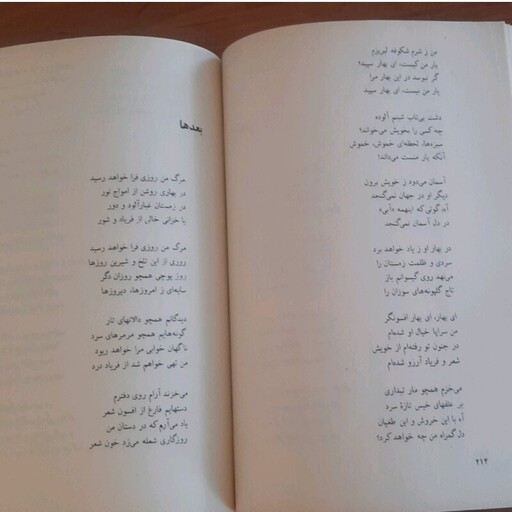 من ز شرم شکوفه لبریزم
یار من کیست، ای بهار سپید؟
گر نبوسد در این بهار مرا
یار من نیست، ای بهار سپید
دشت بی‌تاب شبنم آلوده
چه کسی را بخویش می‌خواند؟
سبزه‌ها، لحظه‌ای خموش، خموش
آنکه یار منست می‌داند!
آسمان می‌دود ز خویش برون
دیگر او در جهان نمی‌گنجد
آه، گوئی که اینهمه «آبی»
در دل آسمان نمی‌گنجد
در بهار او ز یاد خواهد برد
سردی و ظلمت زمستان را
می‌نهد روی گیسوانم باز
تاج گلپونه‌های سوزان را
ای بهار، ای بهار افسونگر
من سراپا خیال او شده‌ام
در جنون تو رفته‌ام از خویش
شعر و فریاد و آرزو شده‌ام
می‌خزم همچو مار تبداری
بر علفهای خیس تازهٔ سرد
آه با این خروش و این طغیان
دل گمراه من چه خواهد کرد؟
۲۱۲
بعدها
مرگ من روزی فرا خواهد رسید
در بهاری روشن از امواج نور
در زمستان غبارآلود و دور
یا خزانی خالی از فریاد و شور
مرگ من روزی فرا خواهد رسید
روزی از این تلخ و شیرین روزها
روز پوچی همچو روزان دگر
سایه‌ای ز امروزها، دیروزها
دیدگانم همچو دالانهای تار
گونه‌هایم همچو مرمرهای سرد
ناگهان خوابی مرا خواهد ربود
من تهی خواهم شد از فریاد درد
می‌خزند آرام روی دفترم
دستهایم فارغ از افسون شعر
یاد می‌آرم که در دستان من
روزگاری شعله می‌زد خون شعر